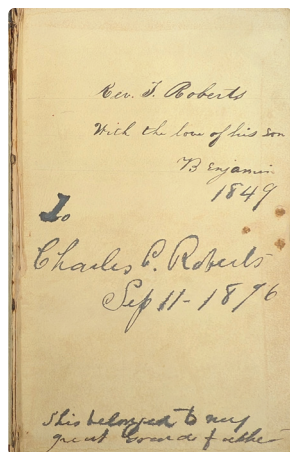 Rev. T. Roberts
With the love of his son
Benjamin
1849
To
Charles C. Roberts
Sep 11 - 1876
This belonged to my
great Grandfather